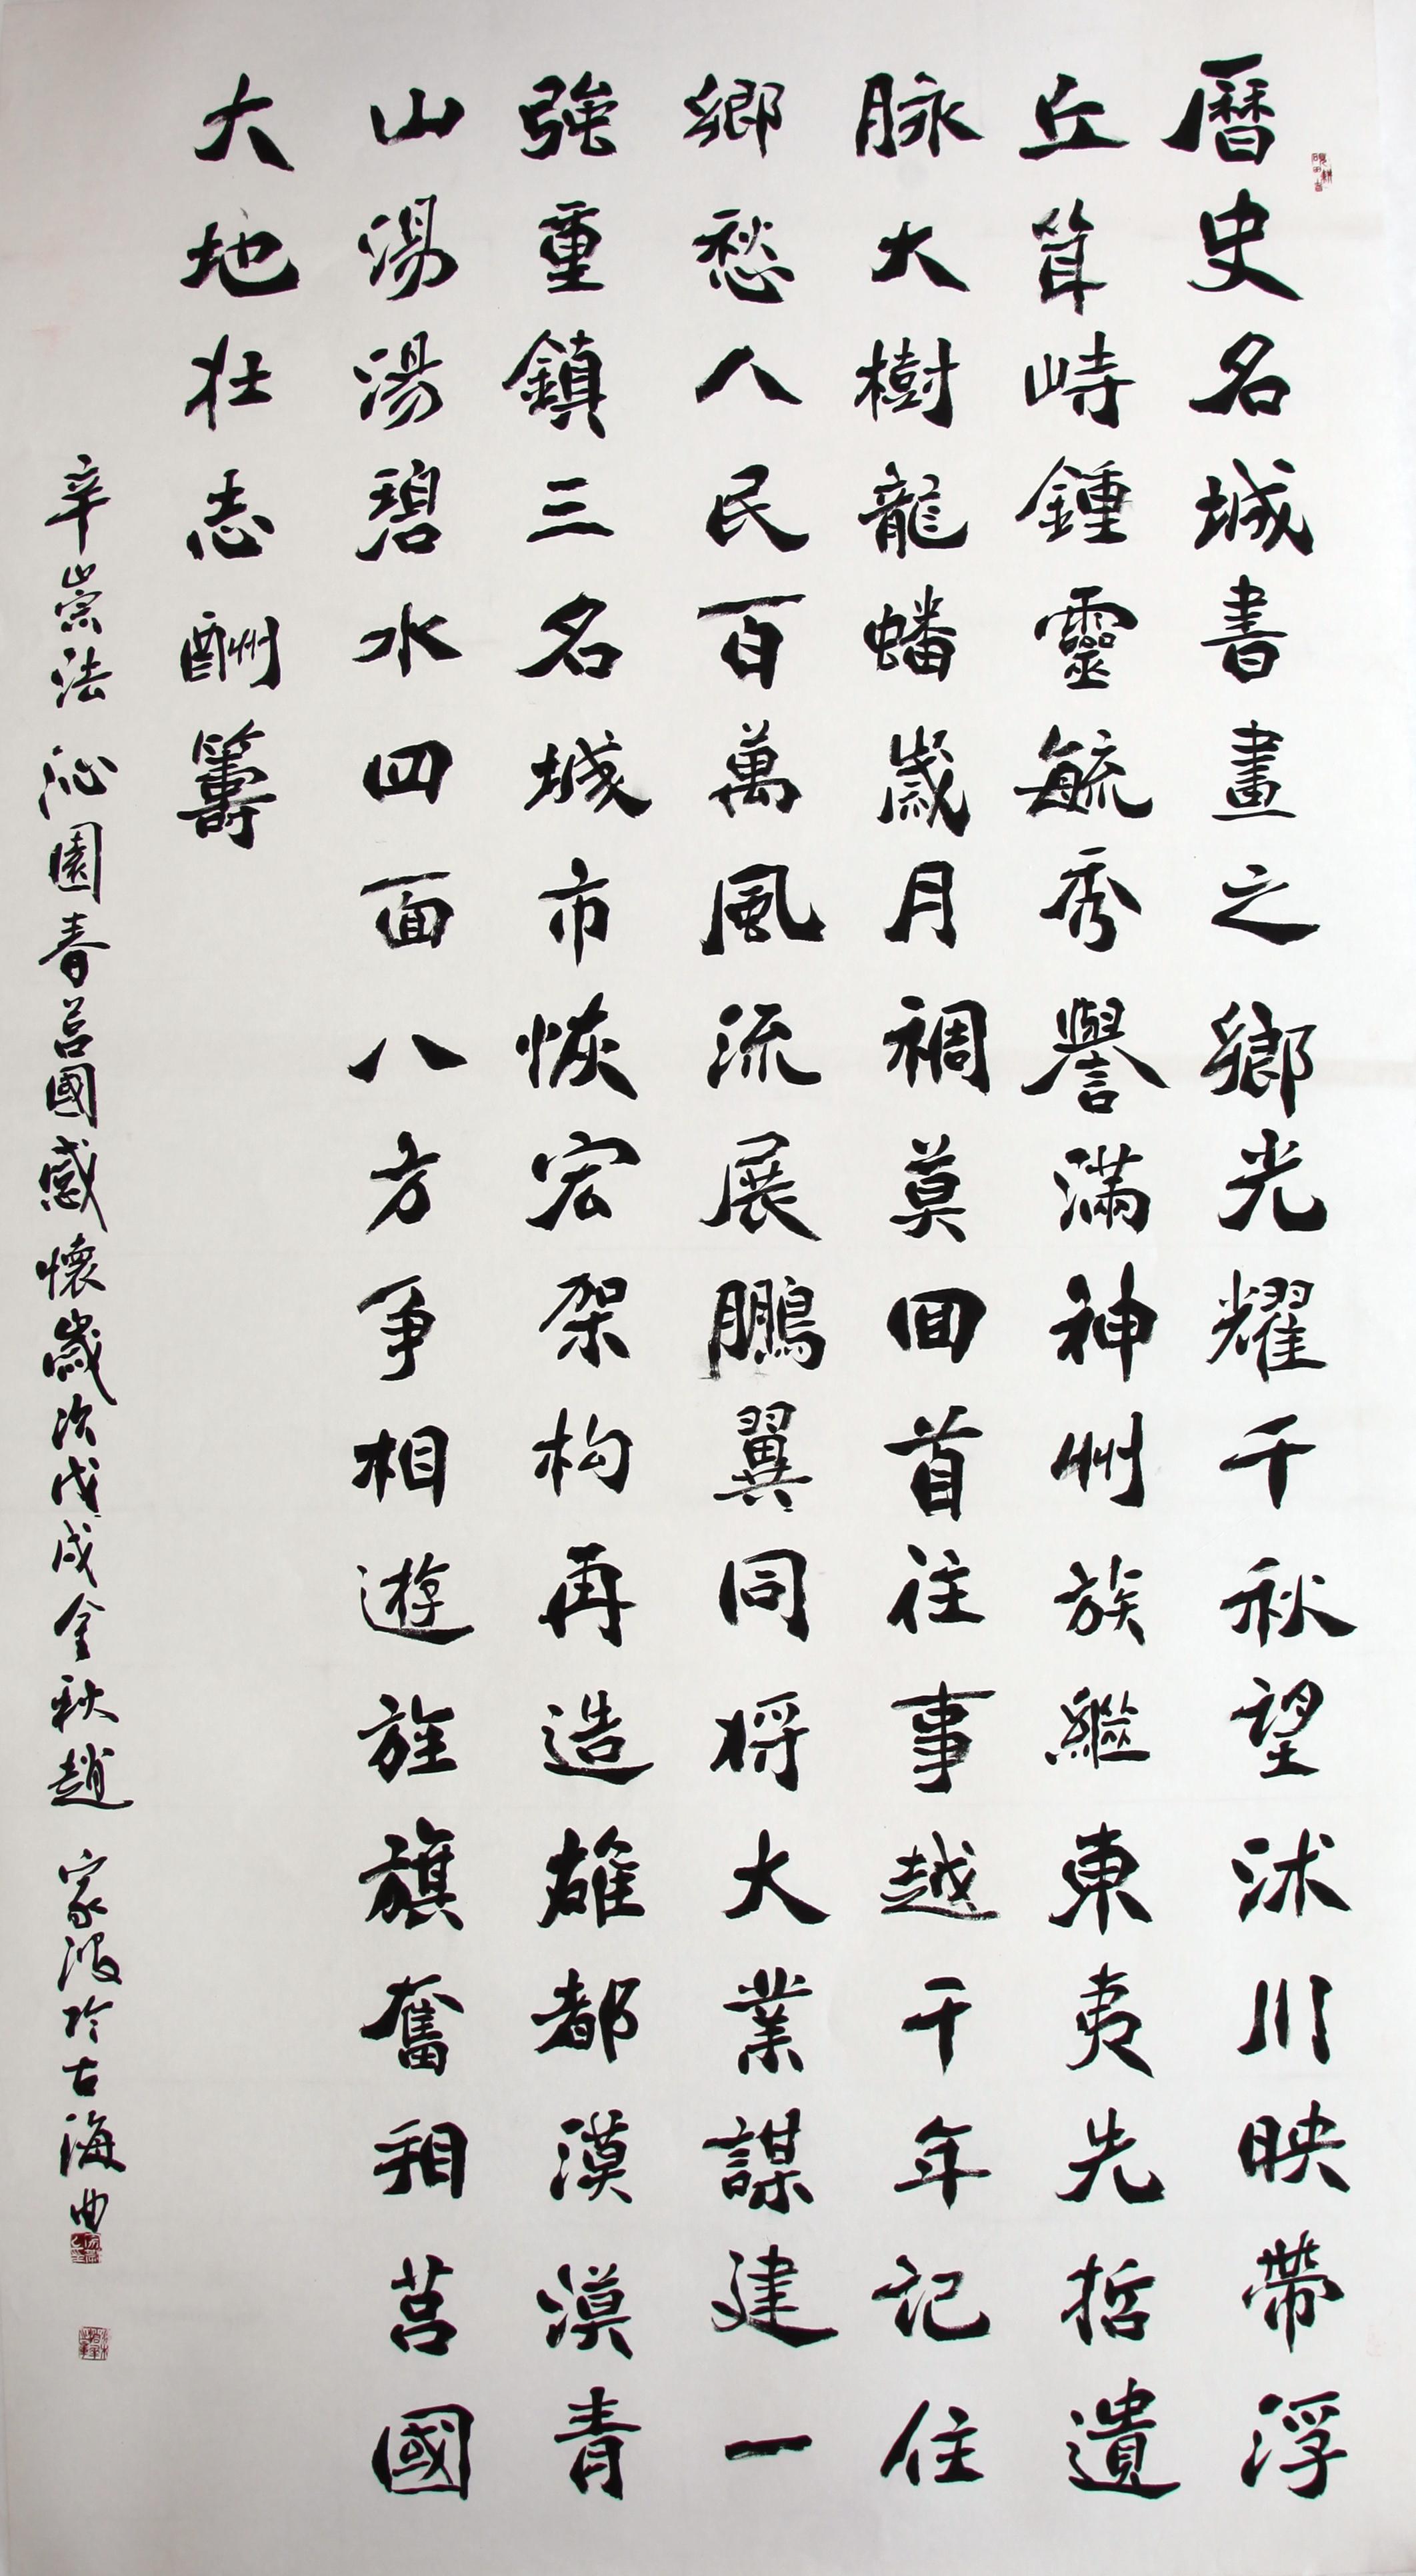 曆史名城書畫之鄉光耀千秋望沭川映帶浮
丘耸峙鍾靈毓秀譽滿神州族繼東夷先哲遺
脉大樹龍蟠歲月裯莫回首往事越千年記住
鄉愁人民百萬風流展鵬翼同將大業謀建一
強重鎮三名城市恢宏架构再造雄都漠漠青
山湯湯碧水四面八方爭相遊旌旗奮相莒國
大地壯志酬籌
辛崇法沁園春莒國感懷歲次戊戌金秋趙家波於古海曲